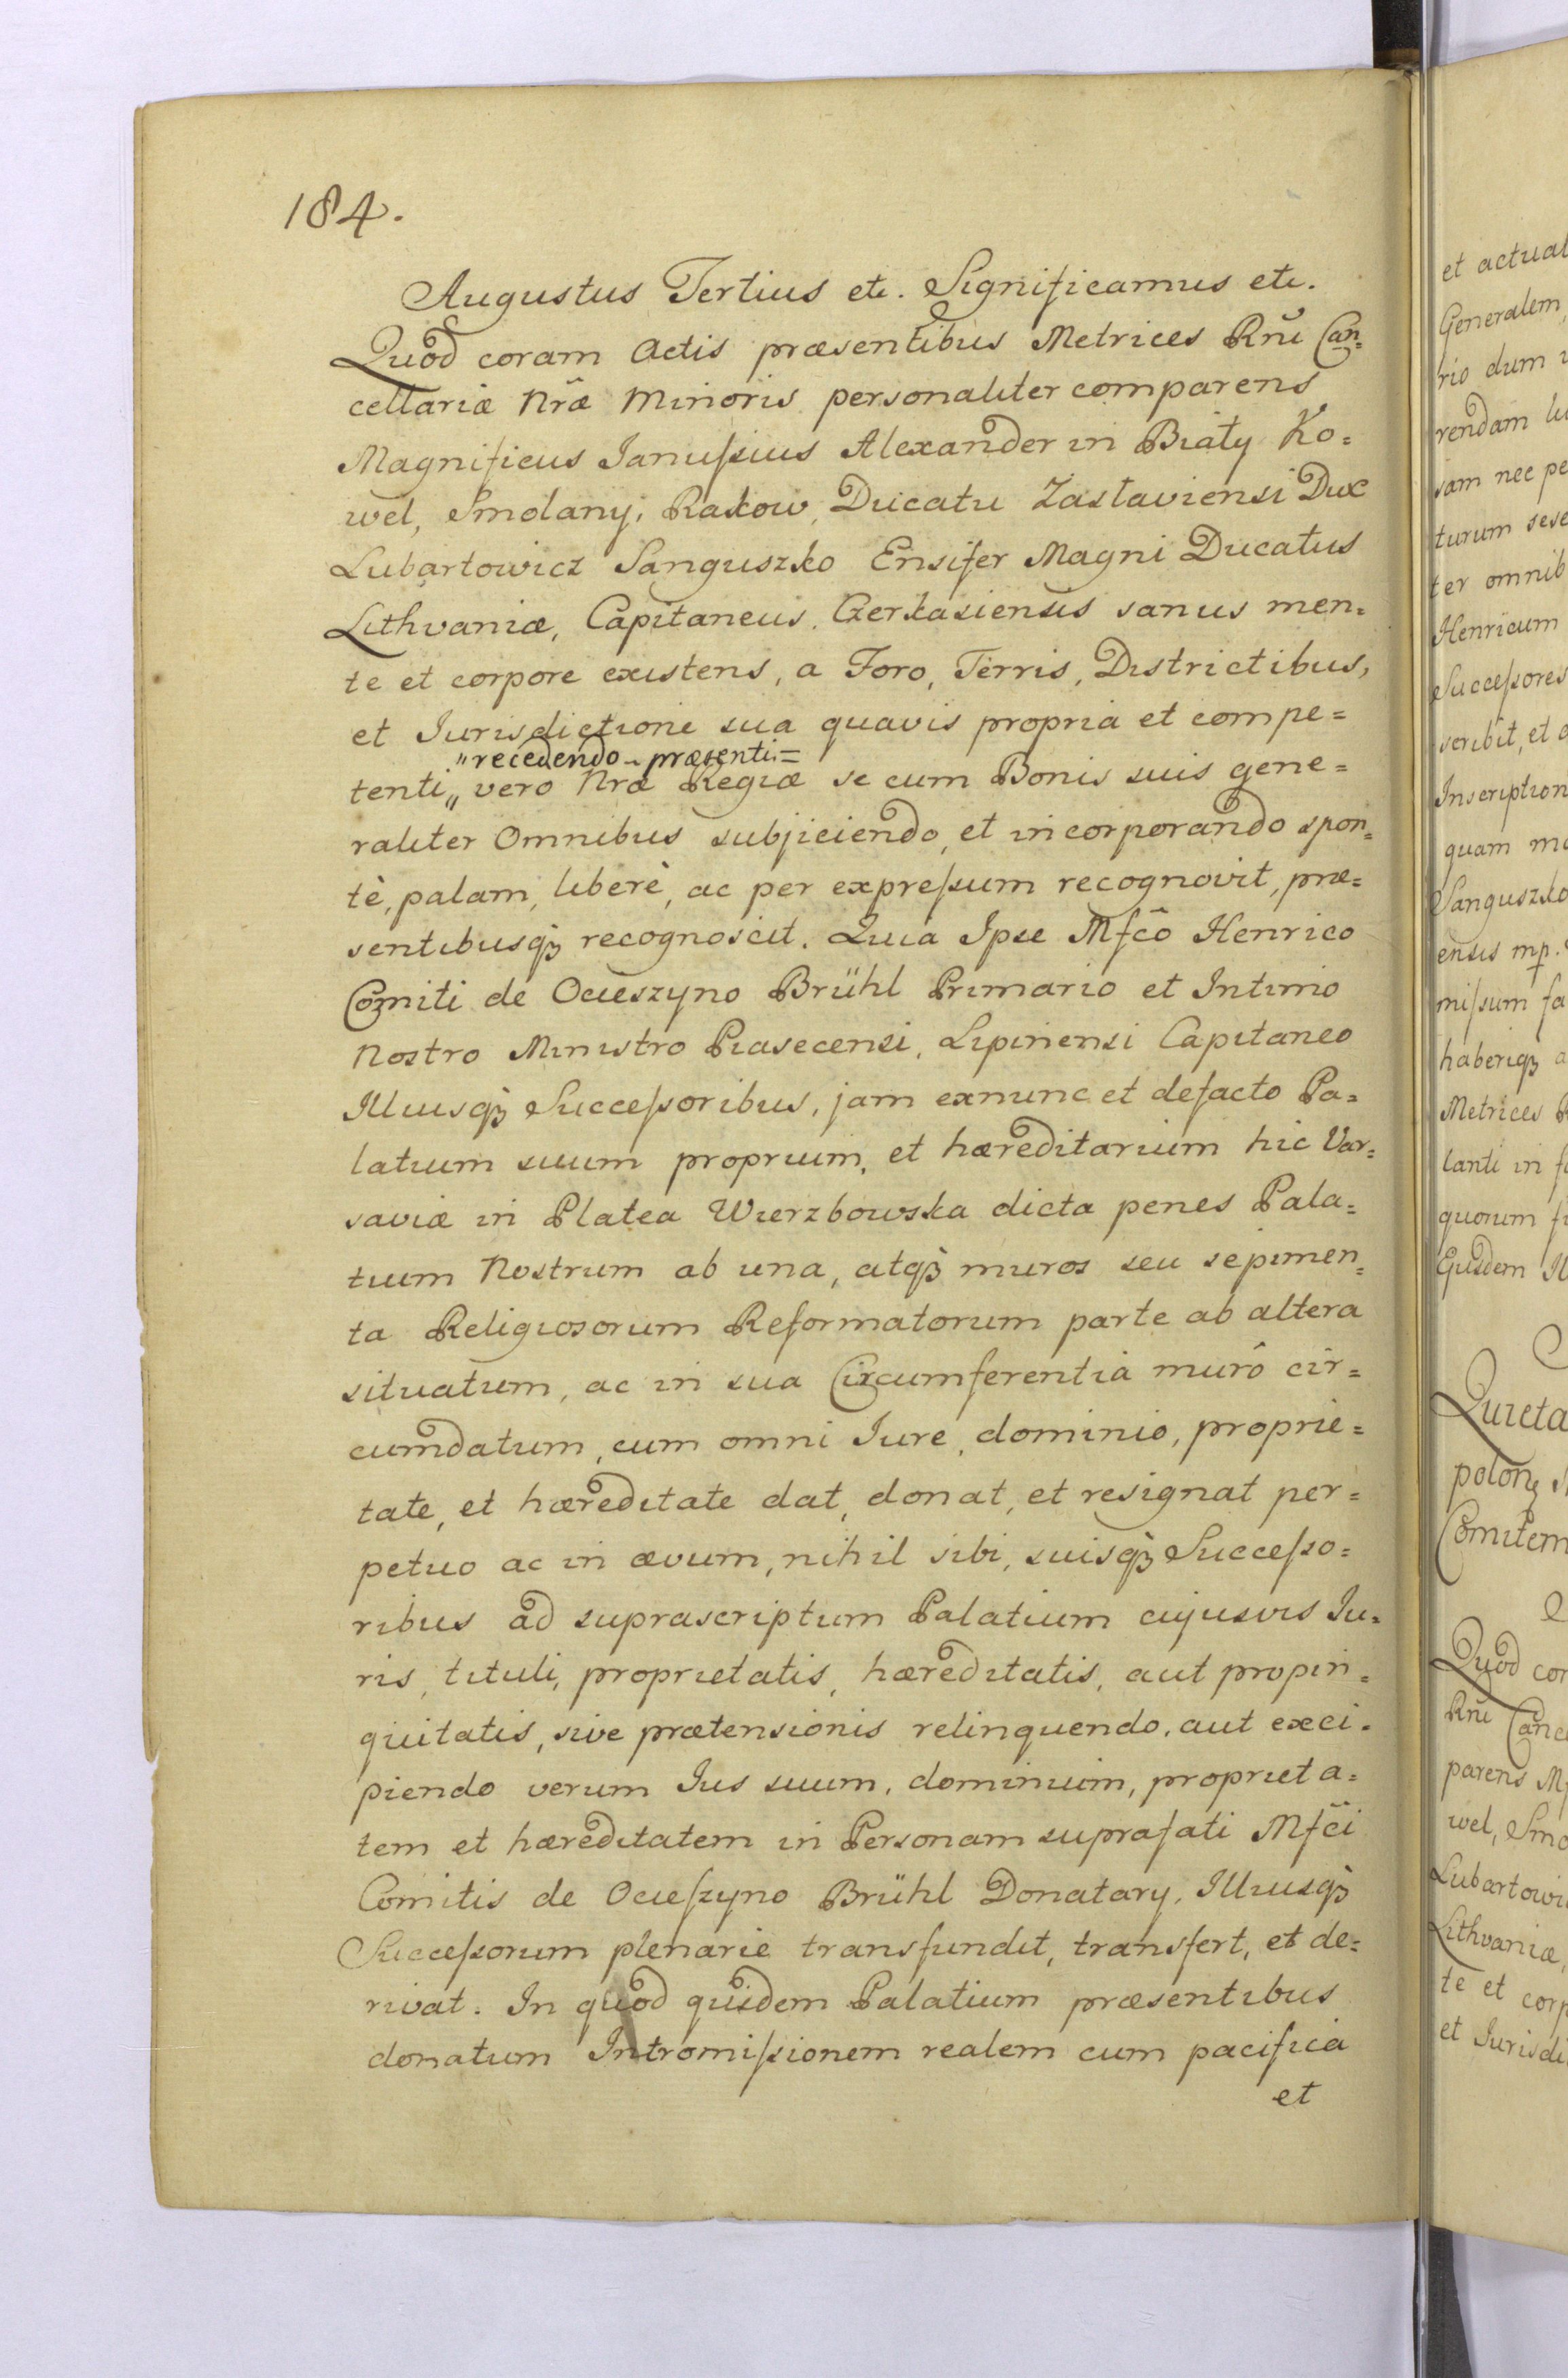 184.
Augustus Tertius etc. Significamus etc.
Quod coram Actis præsentibus Metrices Rñi Can=
cellariæ Nrã Minoris personaliter comparens
Magnificus Janussius Alexander in Biały Ko=
wel, Smolany, Rakow, Ducatu Zasłaviensi Dux
Lubartowicz Sanguszko Ensifer Magni Ducatus
Lithvaniæ, Capitaneus Czerkasiensis sanus men=
te et corpore existens, a Foro, Terris, Districtibus,
et Jurisdictione sua quavis propria et compe=
"recedendo præsenti=
tenti" vero Nræ Regiæ se cum Bonis suis gene=
raliter Omnibus subjiciendo, et incorporando spon=
tè, palam, liberè, ac per expressum recognovit, præ=
sentibusq̃ recognoscit. Quia Ipse Mfcô Henrico
Comiti de Ocieszyno Brühl Primario et Intimo
Nostro Ministro Piasecensi, Lipinensi Capitaneo
Illiusq̃ Successoribus, jam exnunc et defacto Pa=
latium suum proprium, et hæreditarium hic Var=
saviæ in Platea Wierzbowska dicta penes Pala=
tium Nostrum ab una, atq̃ muros seu sepimen=
ta Religiosorum Reformatorum parte ab altera
situatum, ac in sua Circumferentia murô cir=
cumdatum, cum omni Jure, dominio, proprie=
tate, et hæreditate dat, donat, et resignat per=
petuo ac in ævum, nihil sibi, suisq̃ Successo=
ribus ad suprascriptum Palatium cujusvis Ju=
ris, tituli, proprietatis, hæreditatis, aut propin=
quitatis, sive prætensionis relinquendo, aut exci=
piendo verum Jus suum, dominium, proprieta=
tem et hæreditatem in Personam suprafati Mfc̃i
Comitis de Ociessyno Brühl Donatary, Illiusq̃
Successorum plenarie transfundit, transfert, et de=
rivat. In quod quidem Palatium præsentibus
donatum Intromissionem realem cum pacifica
et
et actual
Generalem,
rio dum
rendam
sam nec pe
turum sese
ter omnib
Henricum
Successores
scribit, et
Inscription
quam
Sanguszko
ensis mp.
missum fa
haberiq̃ a
Metrices
lanti in
quorum
Ejusdem Il
Quieta
polon
Comitem
Quod cor
Rñi Cance
parens M
wel, Smo
Lubartowi
Lithvaniæ,
te et corp
et Jurisdi